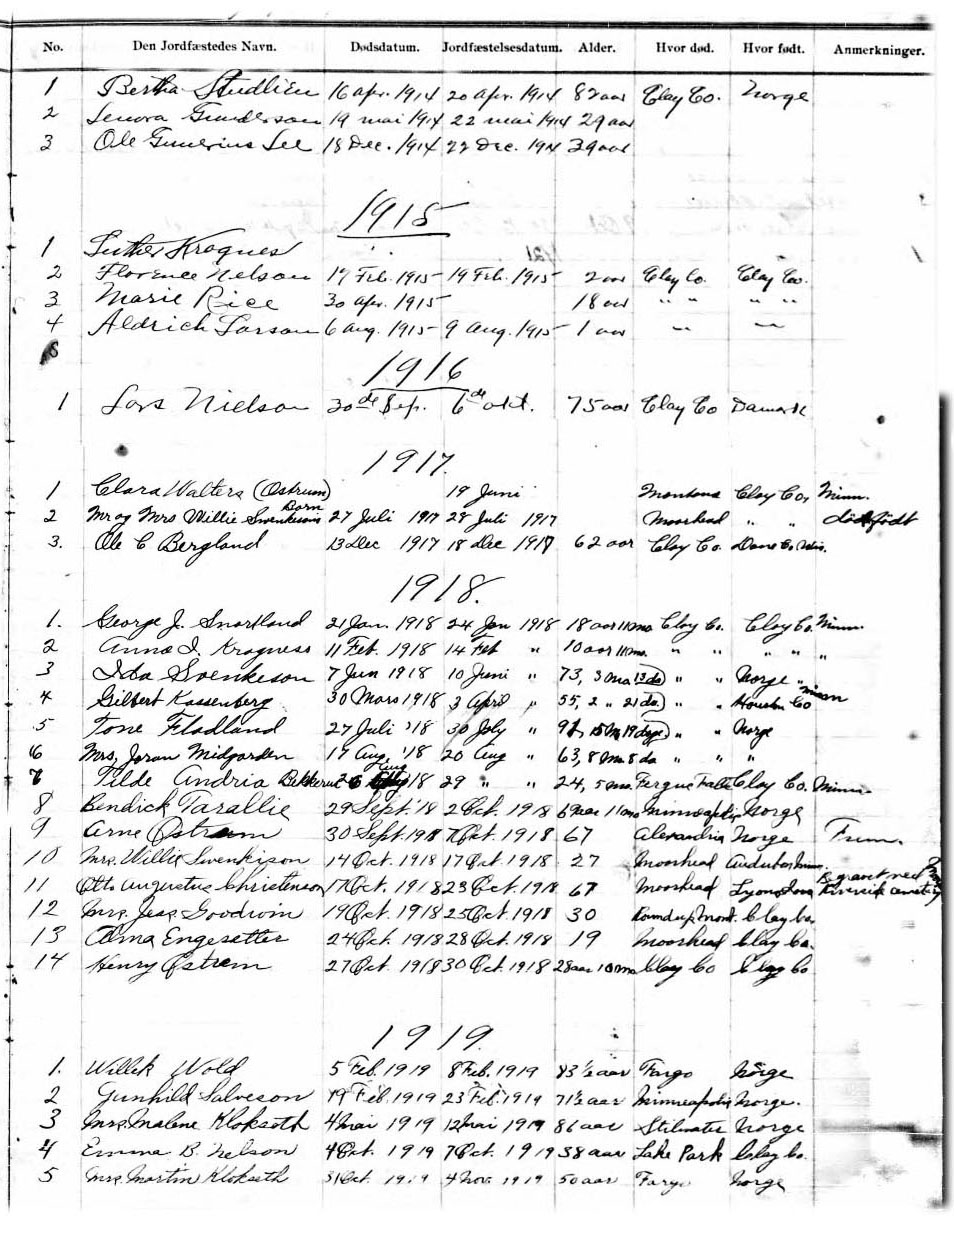 No. Den Jordfæstedes Navn. Dødsdatum. Jordfæstelsesdatum. Alder. Hvor død. Hvor født. Anmerkninger.
1 Bertha Studlien 16 apr. 1914 20 apr. 1914 82 aar Clay Co. Norge
2 Lenora Gunderson 19 mai 1914 22 mai 1914 29 aar
3 Ole Gunerius Lee 18 Dec. 1914 22 Dec. 1914 39 aar
1915
1 Luther Kragnes
2 Florence Nelson 17 Feb. 1915 19 Feb. 1915 2 aar Clay Co. Clay Co.
3 Marie Rice 30 apr. 1915 18 aar " " " "
4 Aldrich Larson 6 aug. 1915 9 aug. 1915 1 aar " "
1916
1 Lars Nielson 30 de Sep. 6 de okt. 75 aar Clay Co Danmark
1917.
1 Clara Walters (Ostrum) 19 Juni Montana Clay Co, Minn.
2 Mr og Mrs Willie Swenkesons Barn 27 Juli 1917 28 Juli 1917 Moorhead " " dødfødt
3. Ole C Bergland 13 Dec 1917 18 Dec 1917 62 aar Clay Co. Dane Co, Wis.
1918.
1. George J. Snortland 21 Jan. 1918 24 Jan 1918 18 aar 11 mo Clay Co. Clay Co. Minn.
2 Anna I. Kragness 11 Feb. 1918 14 Feb " 10 aar 11 mo. " " " " "
3 Ida Svenkeson 7 Jun 1918 10 Juni " 73, 3 ma 13 da " " Norge
4 Gilbert Kassenberg 30 Mars 1918 3 April " 55, 2 " 21 da " " Houston Co Minn
5 Tone Fladland 27 Juli '18 30 July " " " Norge
6 Mrs, Joran Midgarden 17 Aug '18 20 Aug " 63, 8 mo 8 da " " "
7 Tilde Andria 26 Aug 18 29 " " 24, 5 mo. Fergus Falls Clay Co. Minn.
8 Bendick Tarallie 29 Sept. '18 2 Oct. 1918 11 mo Minneapolis Norge
9 Arne Ostrum 30 Sept. 1918 7 Oct. 1918 67 Alexandria Norge
10 Mrs. Willie Swenkison 14 Oct. 1918 17 Oct. 1918 27 Moorhead Audubon Minn.
11 Otto Augustus Christenson 17 Oct. 1918 23 Oct. 1918 67 Moorhead Riverside cemetery
12 Mrs. Jess Goodwin 19 Oct. 1918 25 Oct. 1918 30 Roundup, Mont. Clay Co.
13 Alma Engesetter 24 Oct. 1918 28 Oct. 1918 19 Moorhead Clay Co.
14 Henry Ostrem 27 Oct. 1918 30 Oct. 1918 28 aar 10 mo Clay Co Clay Co
1919.
1. Willek Wold 5 Feb. 1919 8 Feb. 1919 83 ½ aar Fargo Norge
2 Gunhild Salveson 19 Feb. 1919 23 Feb. 1919 71½ aar Minneapolis Norge.
3 Mrs. Malene Kloksoth 4 Mai 1919 12 Mai 1919 86 aar Stilwater Norge
4 Emma B. Nelson 4 Oct. 1919 7 Oct. 1919 38 aar Lake Park Clay Co.
5 Mrs. Martin Kloksoth 31 Oct. 1919 4 Nov. 1919 50 aar Fargo Norge